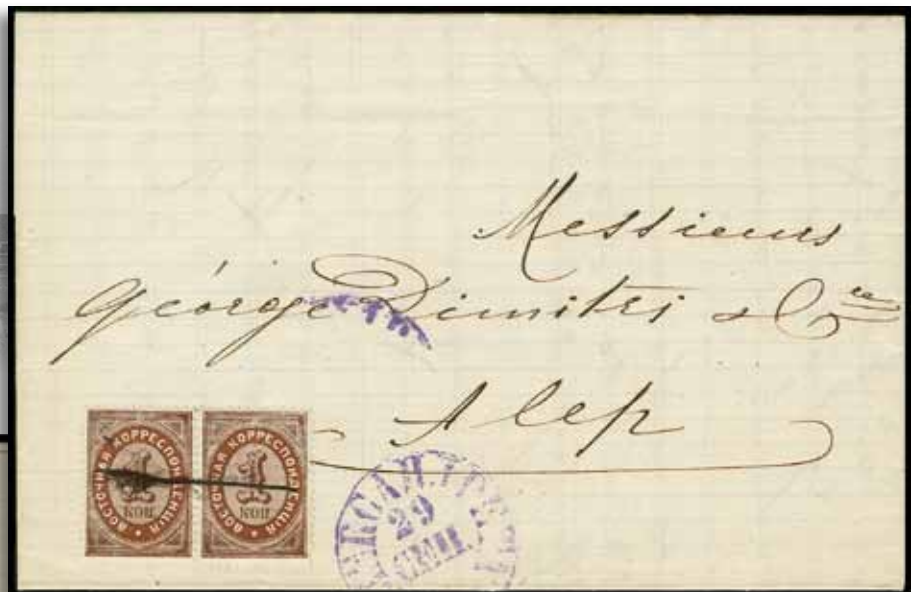 Messieurs
George Dimitri & Cie
Alep
ВОСТОЧНАЯ КОРРЕСПОНДЕНЦІЯ
1
КОП
ВОСТОЧНАЯ КОРРЕСПОНДЕНЦІЯ
1
КОП
29